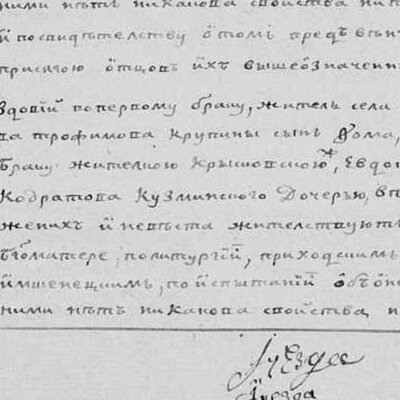 ними нѣтъ никакова свойства ни
й посвидѣтелству ѻ томъ предъ
присягою ѻтцовъ ихъ вышеѻзначенн
здовїй по первому браку, житель села
ва трофимова Крупины сынъ Ѳома,
браку жителкою Крыловскою, Евдо
Кодратова Кузминского Дочерью, вп
женихъ й невѣста жителствуютъ
бгоматере, политургїй, приходскимъ
йспытанїй ѻбъ
ними нѣтъ никакова свойства н